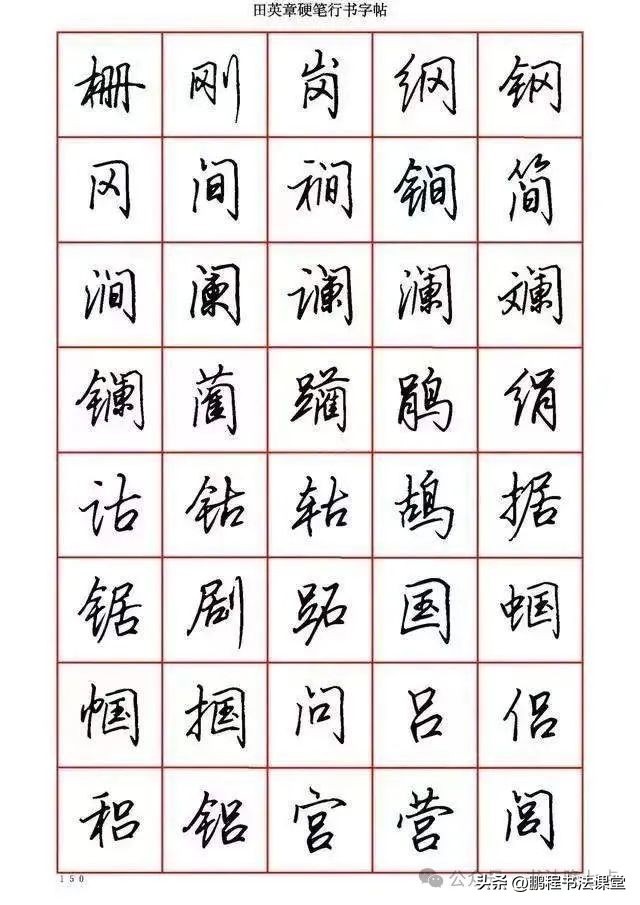 田英章硬笔行书字帖
栅 刚 岗 纲 钢
冈 间 裥 锏 简
涧 阑 谰 澜 斓
镧 蔺 躏 鹃 绢
诂 钴 轱 鸪 据
锯 剧 跖 国 蝈
帼 掴 问 吕 侣
稆 铝 宫 营 闾
150
头条 @鹏程书法课堂